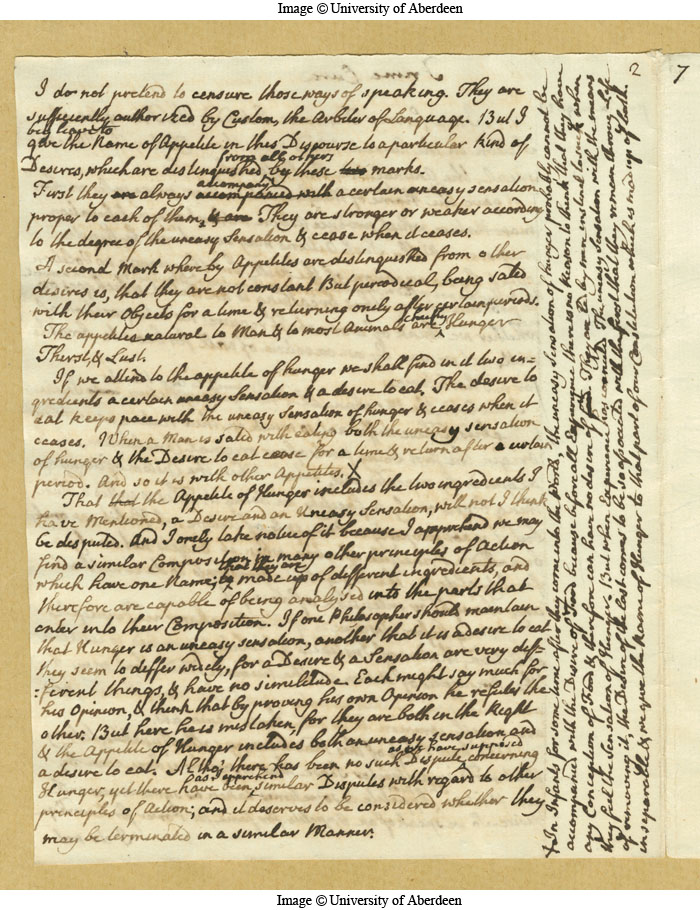 Image © University of Aberdeen
2
7
I do not pretend to censure those ways of speaking. They are
sufficiently authorized by Custom, the Arbiter of Language. But I
beg leave to
give the Name of Appetite in this Discourse to a particular kind of
from all others
Desires, which are distinguished by these two marks.
First they are always accompanied with a certain uneasy sensation
proper to each of them, & are They are stronger or weaker according
to the degree of the uneasy Sensation & cease when it ceases.
A second Mark where by Appetites are distinguished from other
desires is, that they are not constant But periodical, being sated
with their Objects for a time & returning onely after certain periods.
The appetites natural to Man & to most Animals are chiefly Hunger
Thirst, & Lust.
If we attend to the appetite of hunger we shall find in it two in-
gredients a certain uneasy Sensation & a desire to eat. The desire to
eat keeps pace with the uneasy Sensation of hunger & ceases when it
ceases. When a Man is sated with eating both the uneasy sensation
of hunger & the Desire to eat cease for a time & return after a certain
period. And so it is with other Appetites. X
That that the Appetite of Hunger includes the two ingredients I
have Mentioned, a Desire and an Uneasy Sensation, will not I think
be disputed. And I onely take notice of it because I apprehend we may
find a similar Composition in many other principles of Action
that they are
which have one Name; made up of different ingredients, and
therefore are capable of being analysed into the parts that
enter into their Composition. If one Philosopher should maintain
that Hunger is an uneasy sensation, another that it is a desire to eat
they seem to differ widely, for a Desire & a Sensation are very dif-
:ferent things, & have no similitude. Each might say much for
his Opinion, & think that by proving his own Opinion he refutes the
other. But here he is mistaken, for they are both in the Right
& the Appetite of Hunger includes both an uneasy sensation and
a desire to eat. Altho' there has been no such Dispute concerning
as we have supposed
Hunger, yet there have been similar Disputes with regard to other
as I apprehend
principles of Action; and it deserves to be considered whether they
may be terminated in a similar Manner.
X In Infants for some time after they come into the World, the uneasy Sensation of hunger probably cannot be
accompanied with the Desire of Food because before all Experience there is no reason to think that they have
any Conception of Food & therefore can have no desire of it. They eat by mere instinct when
they feel the Sensation of Hunger. But when Experience has connected The uneasy Sensation with the means
of removing it, the Desire of the last comes to be so associated with the first that they remain through Life
inseparable & we give the Name of Hunger to that part of our Constitution which is made up of both.
Image © University of Aberdeen